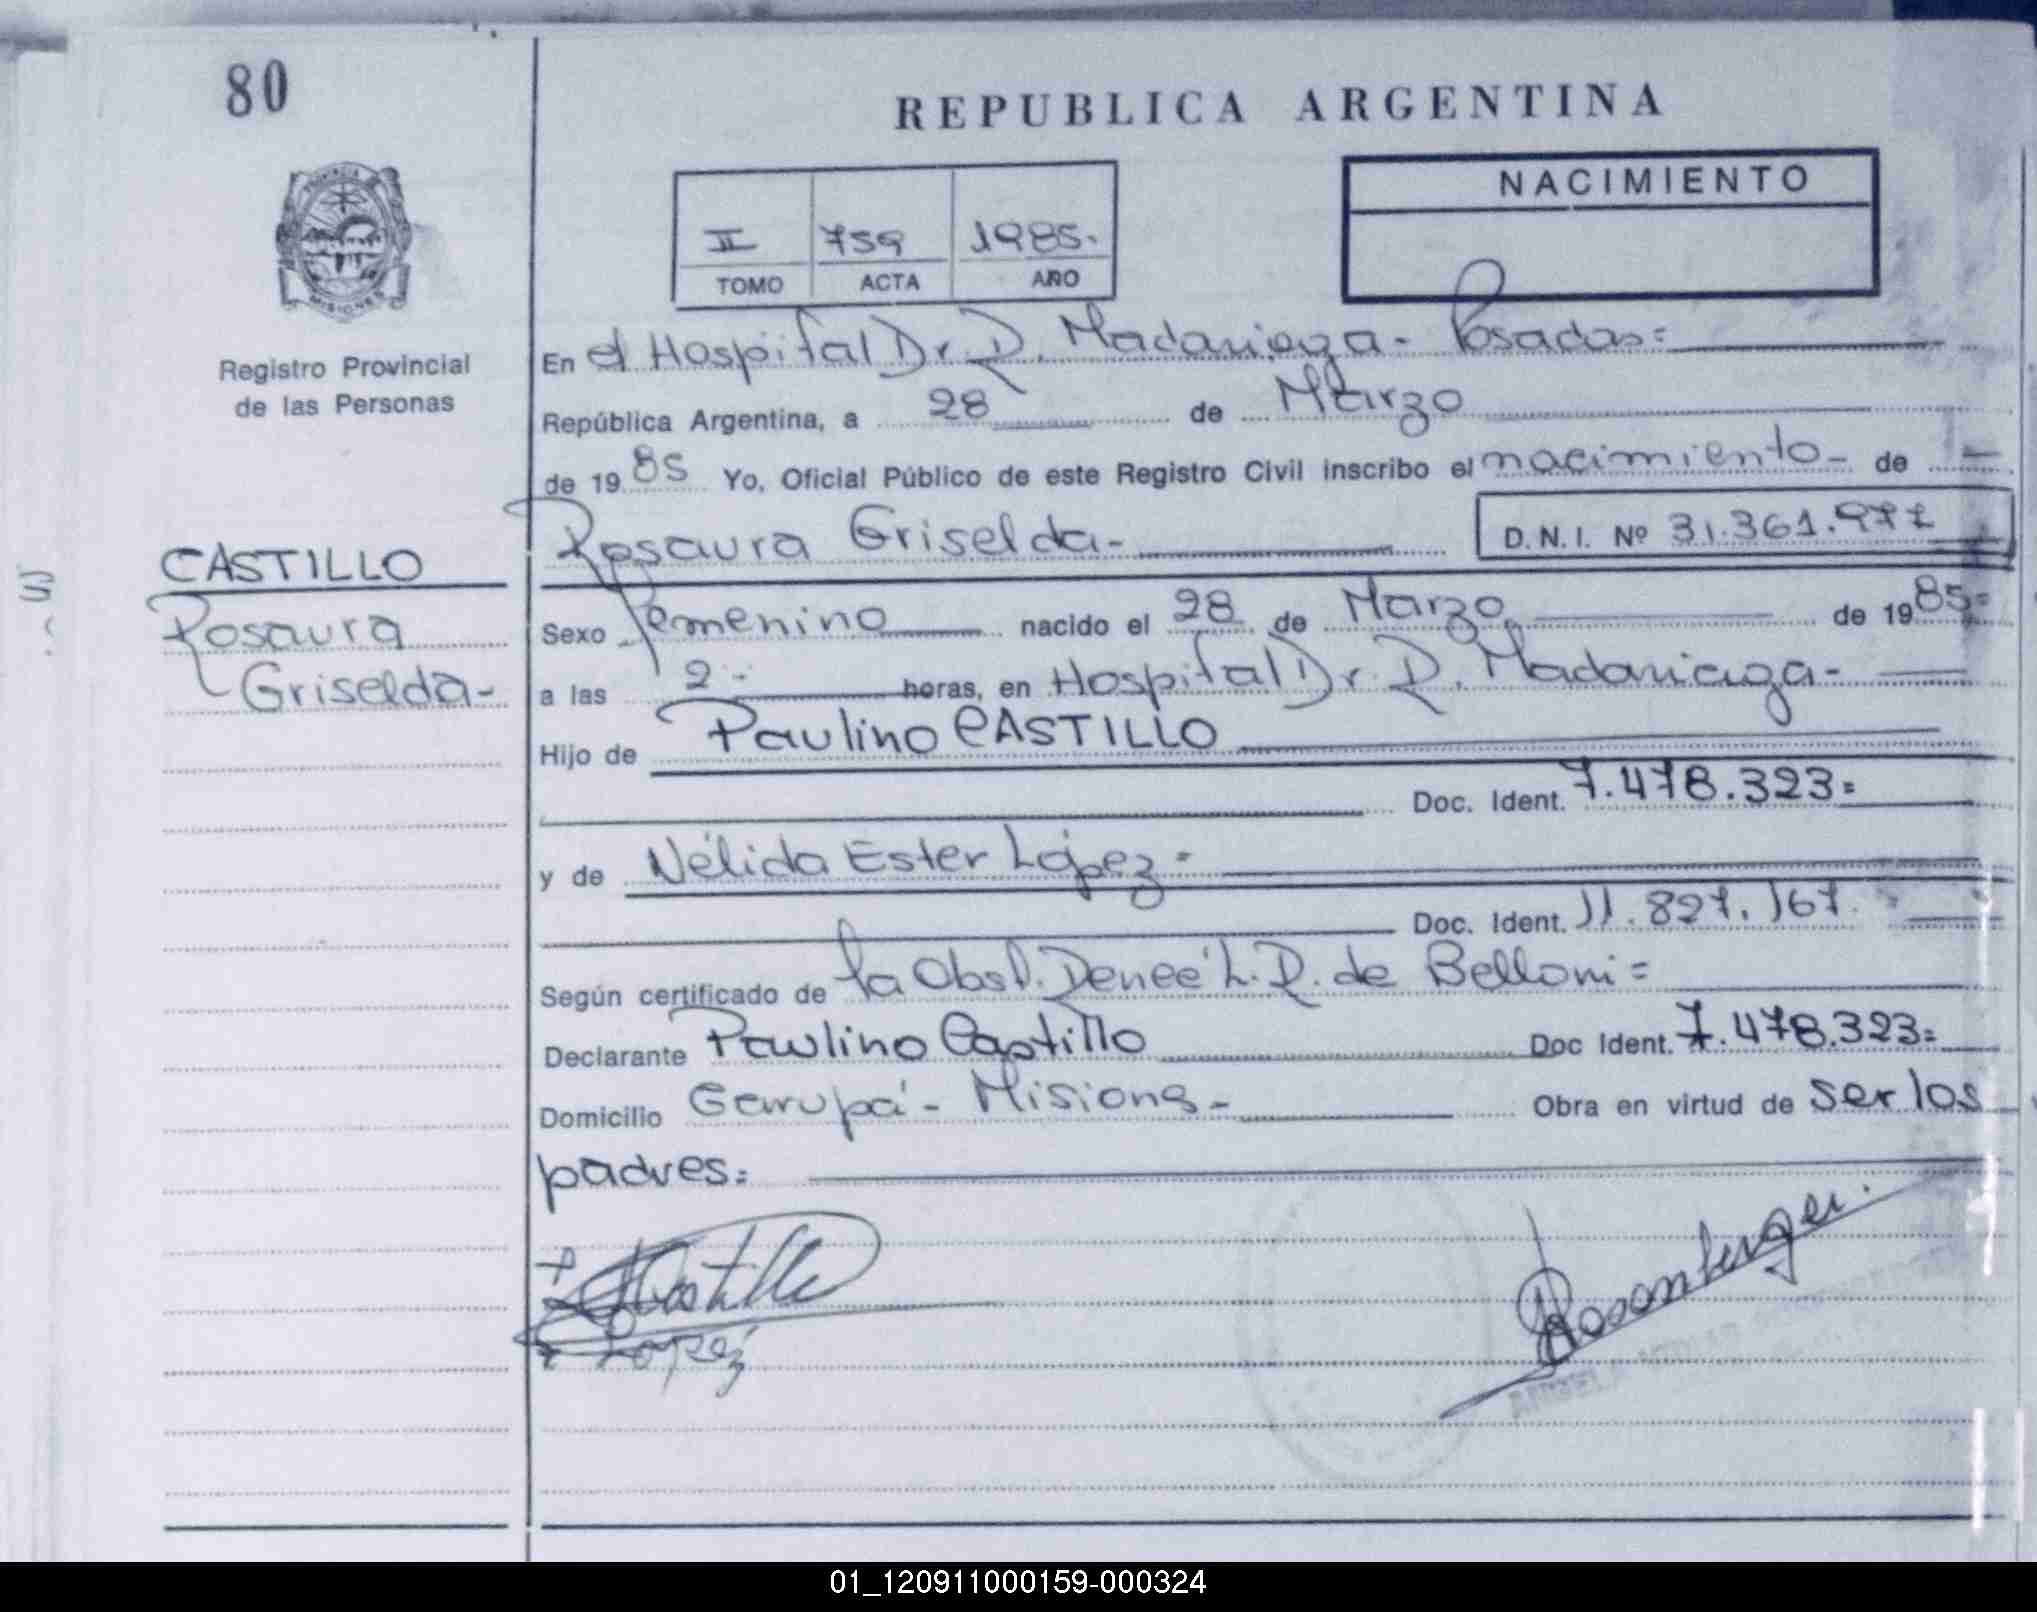 80
REPUBLICA ARGENTINA
PROVINCIA
MISIONES
Registro Provincial
de las Personas
II 759 1985.
TOMO ACTA AÑO
NACIMIENTO
En el Hospital Dr. R. Madariaga - Posadas =
República Argentina, a 28 de Marzo
de 1985 Yo, Oficial Público de este Registro Civil inscribo el nacimiento - de -
Rosaura Griselda - D. N. I. Nº 31.361.977
CASTILLO
Rosaura
Griselda -
Sexo femenino nacido el 28 de Marzo de 1985 =
a las 2 - horas, en Hospital Dr. R. Madariaga -
Hijo de Paulino CASTILLO
Doc. Ident. 7.478.323 =
y de Nélida Ester López =
Doc. Ident. 11.827.167
Según certificado de la Obst. Reneé L. R. de Belloni =
Declarante Paulino Castillo Doc Ident. 7.478.323 =
Domicilio Garupá - Misiones - Obra en virtud de ser los
padres =
Castillo
López
Rosenberger
01_120911000159-000324